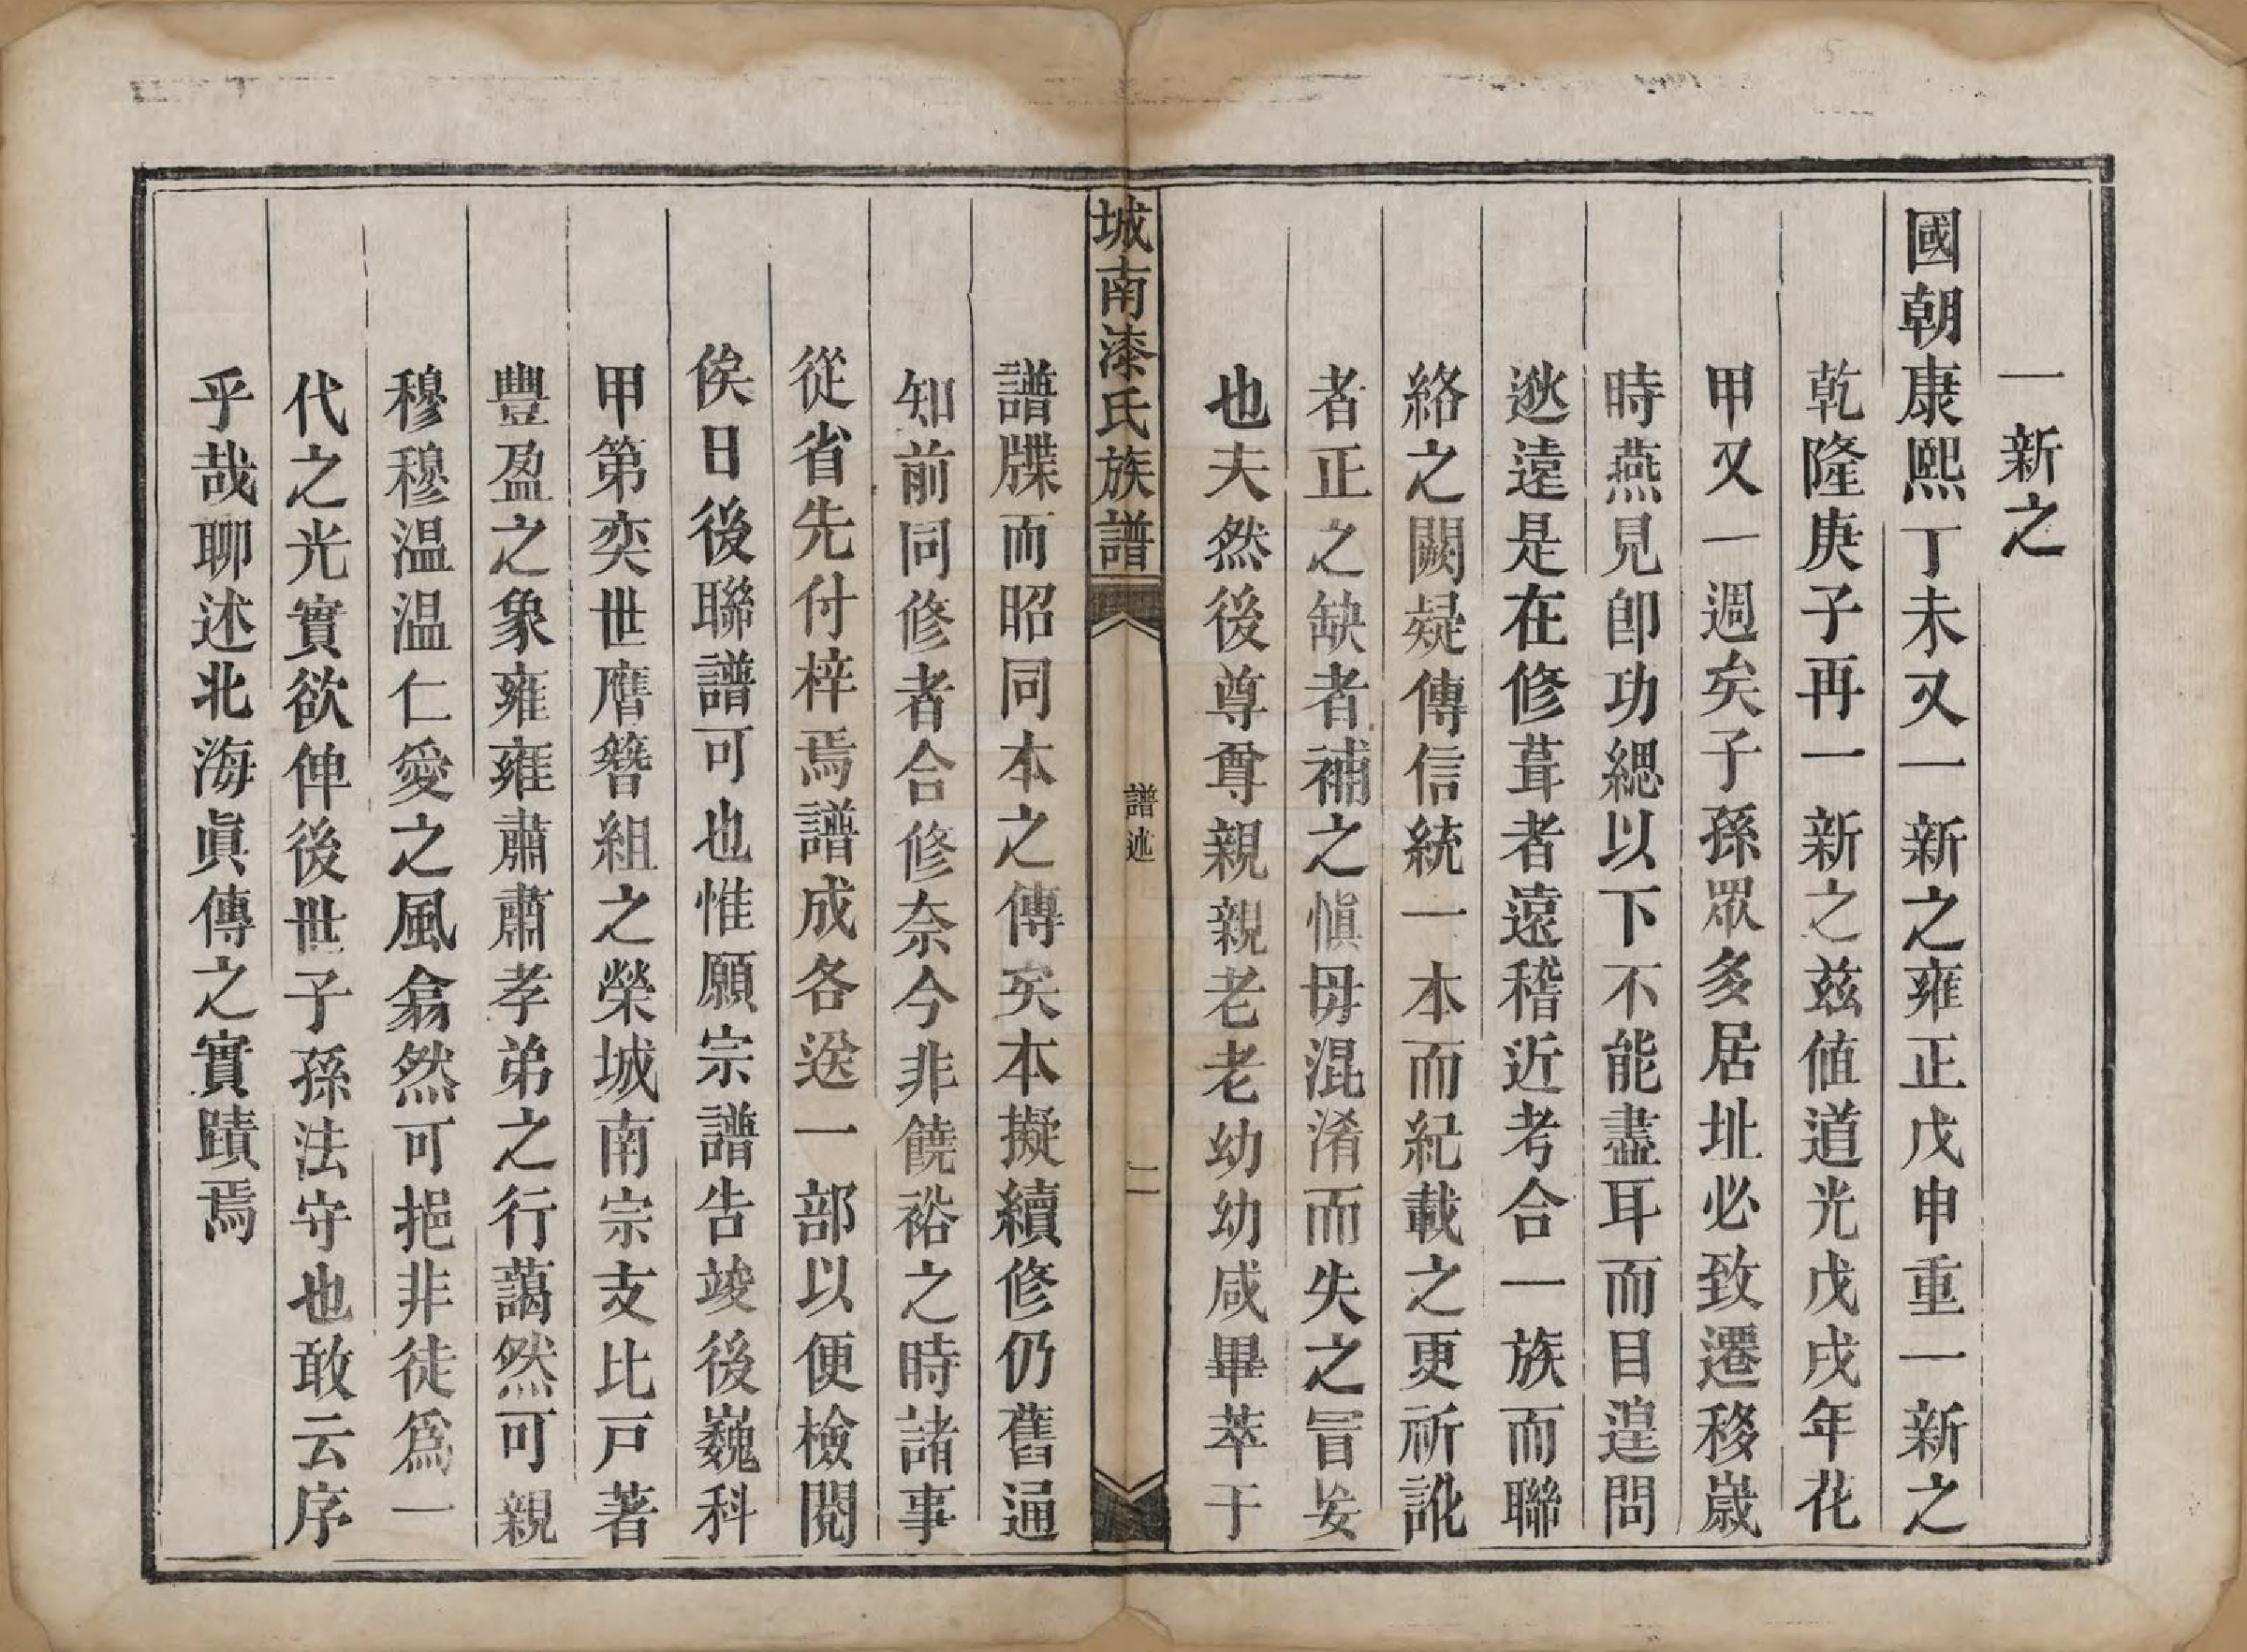 一新之
國朝康熙丁未又一新之雍正戊申重一新之
乾隆庚子再一新之兹值道光戊戌年花
甲又一週矣子孫眾多居址必致遷移嵗
時燕見卽功緦以下不能盡耳而目遑問
逖遠是在修葺者遠稽近考合一族而聯
絡之闕疑傳信統一本而紀載之更祈訛
者正之缺者補之愼毋混淆而失之冒妄
也夫然後尊尊親親老老幼幼咸畢萃于
城南漆氏族譜
譜述
二
譜牒而昭同本之傳矣本擬續修仍舊通
知前同修者合修奈今非饒裕之時諸事
從省先付梓焉譜成各送一部以便檢閱
俟日後聯譜可也惟願宗譜告竣後巍科
甲第奕世膺簪組之榮城南宗支比戸著
豐盈之象雍雍肅肅孝弟之行藹然可親
穆穆温温仁愛之風翕然可挹非徒爲一
代之光實欲俾後世子孫法守也敢云序
乎哉聊述北海眞傳之實蹟焉